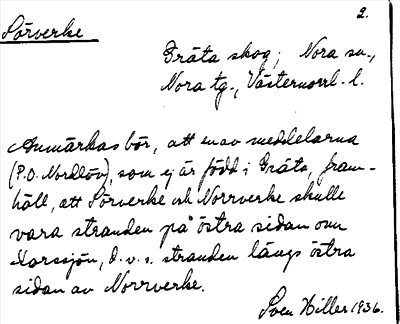 2.
Sörverke
Gråta skog; Nora sn.,
Nora tg., Västernorrl. l.
Anmärkas bör, att en av meddelarna
(P.O. Nordlöv), som ej är född i Gråta, fram-
höll, att Sörverke och Norrverke skulle
vara stranden på östra sidan om
Norssjön, d.v.s. stranden längs östra
sidan av Norrverke.
Sven Hiller 1936.